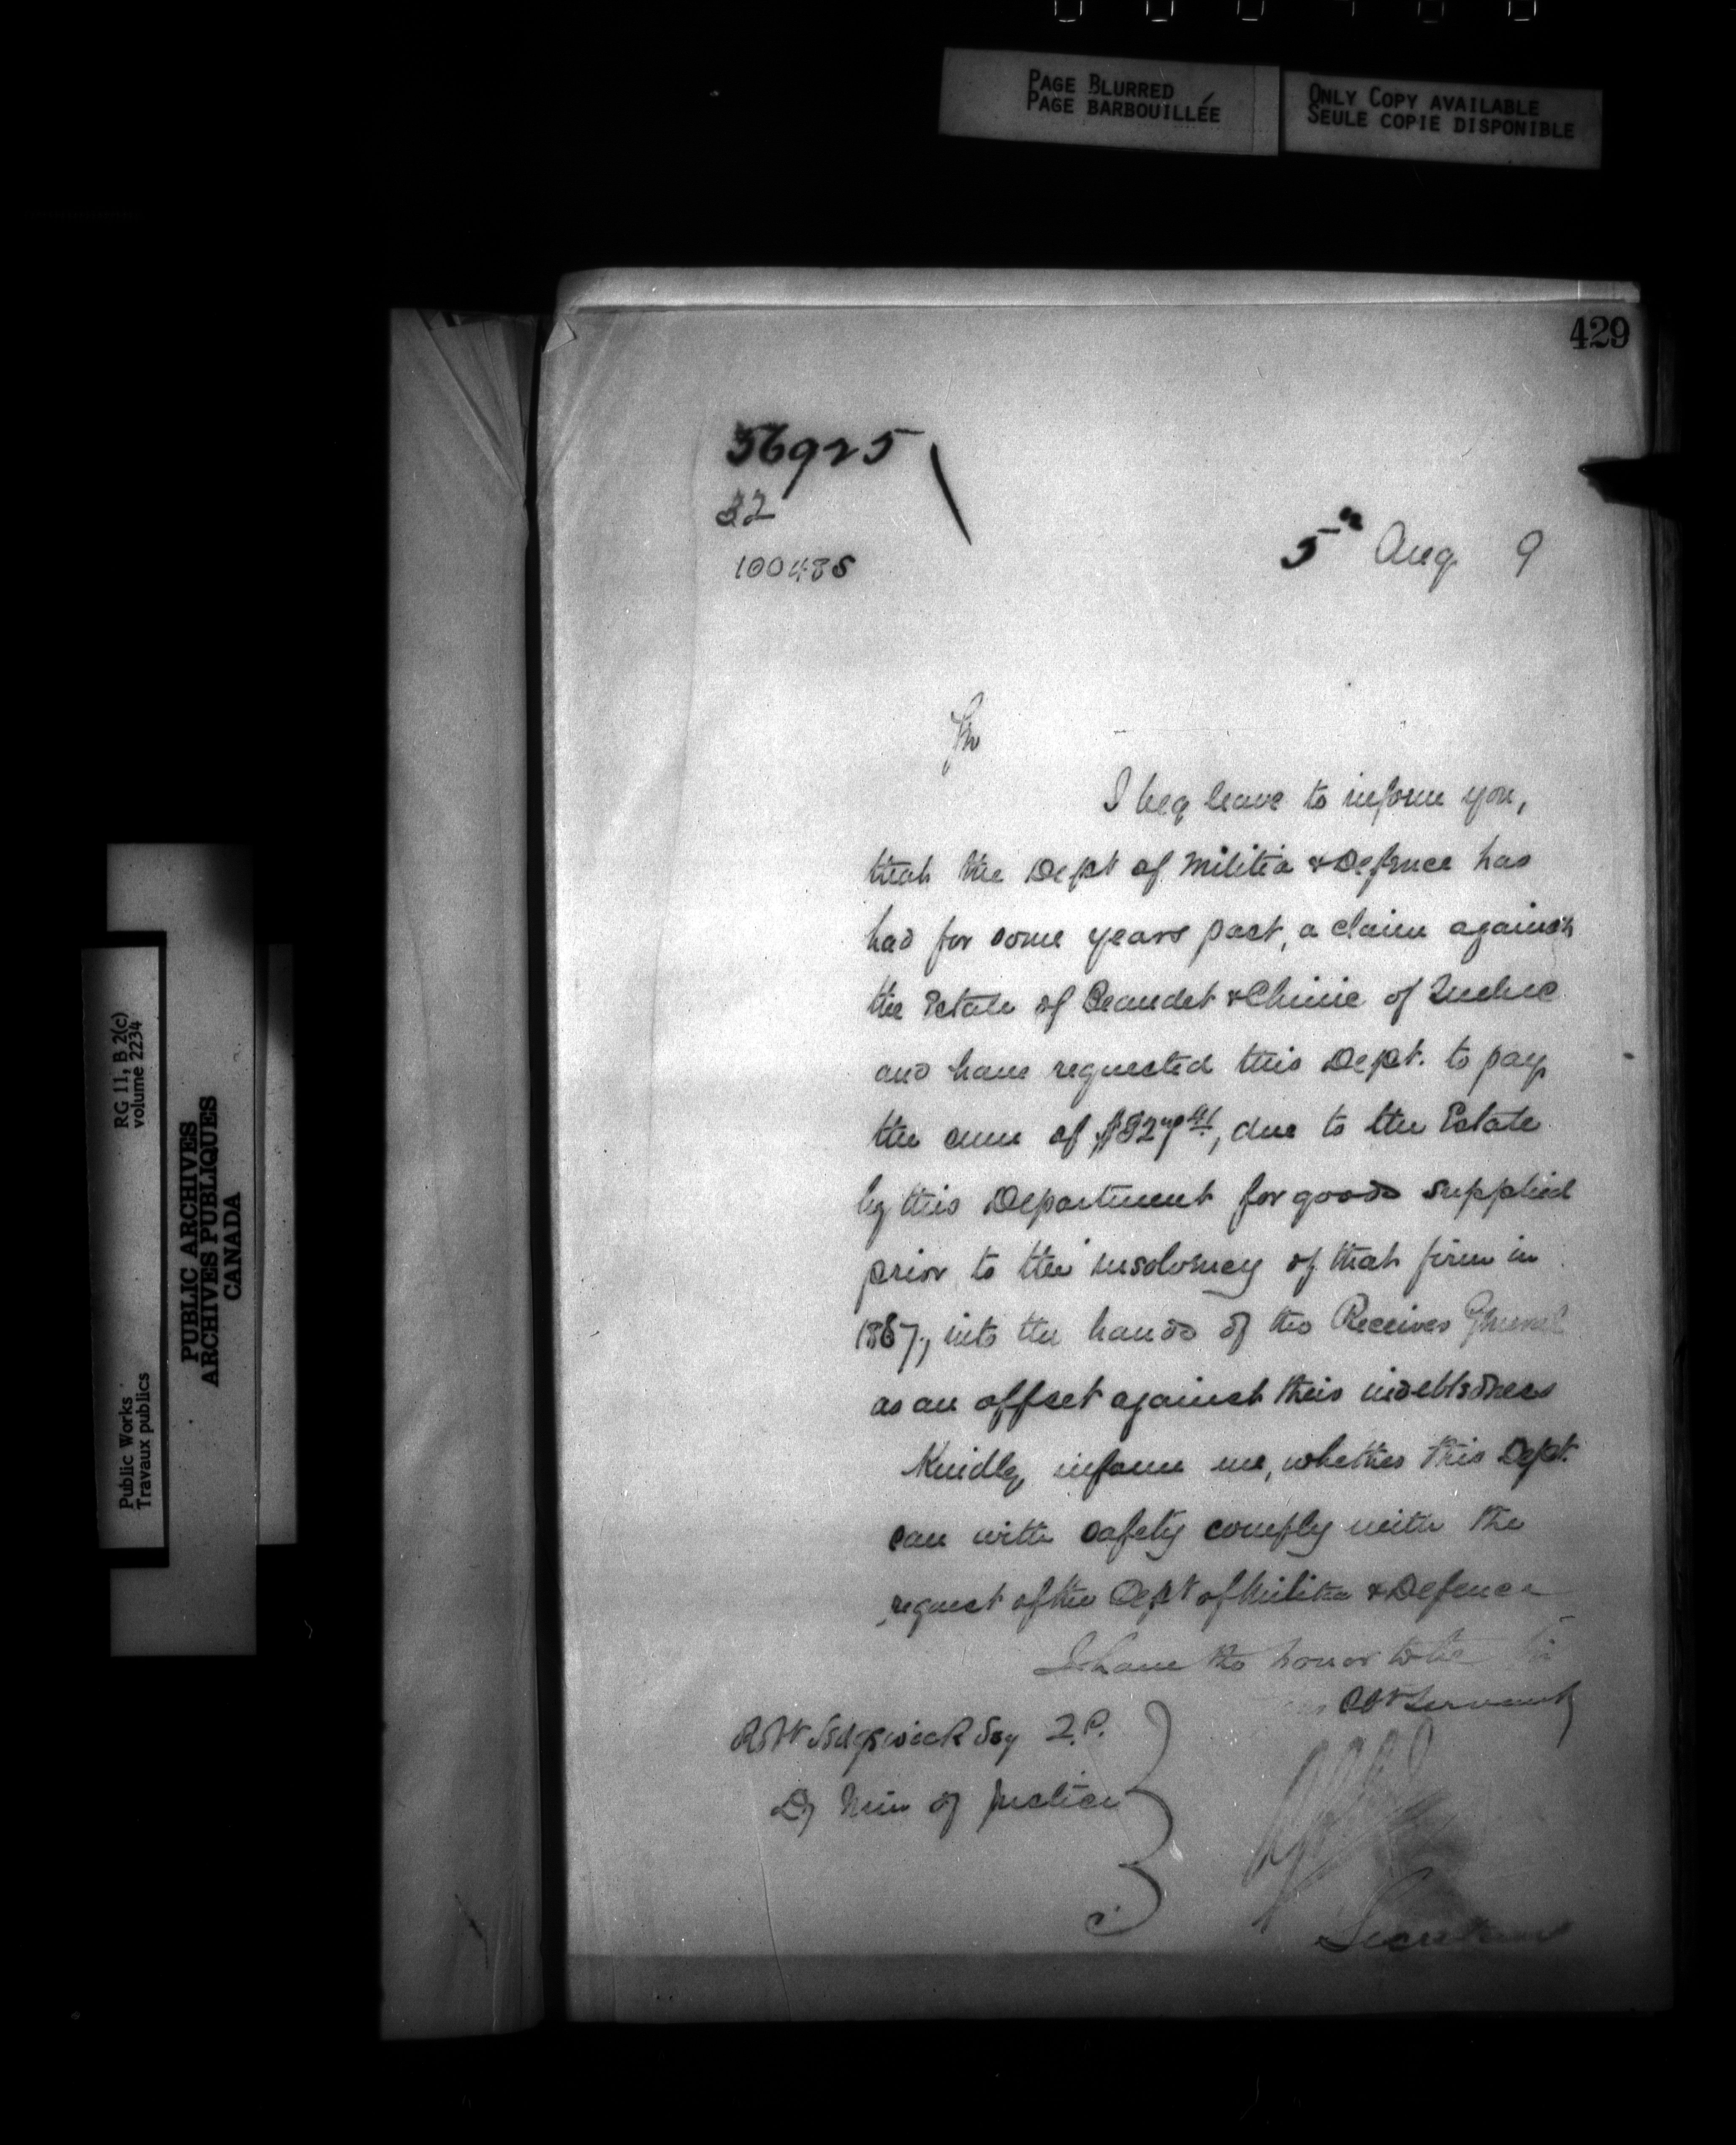 PAGE BLURRED
PAGE BARBOUILLÉE
ONLY COPY AVAILABLE
SEULE COPIE DISPONIBLE
429
56925
32
100485
5th Aug 9
Sir
I beg leave to inform you,
that the Dept of Militia & Defence has
had for some years past, a claim against
the Estate of Beaudet & Chinic of Quebec
and have requested this Dept. to pay
the sum of due to the Estate
by this Department for goods supplied
prior to the insolvency of that firm in
1887, into the hands of the Receiver General
as an offset against their indebtedness
Kindly inform me, whether this Dept.
can with safety comply with the
request of the Dept of Militia & Defence
I have the honor to be Sir
Obt Servant
R W Sedgewick Esq Q.C.
Dy Min of Justice
Secretary
RG 11, B 2(c)
volume 2234
PUBLIC ARCHIVES
ARCHIVES PUBLIQUES
CANADA
Public Works
Travaux publics